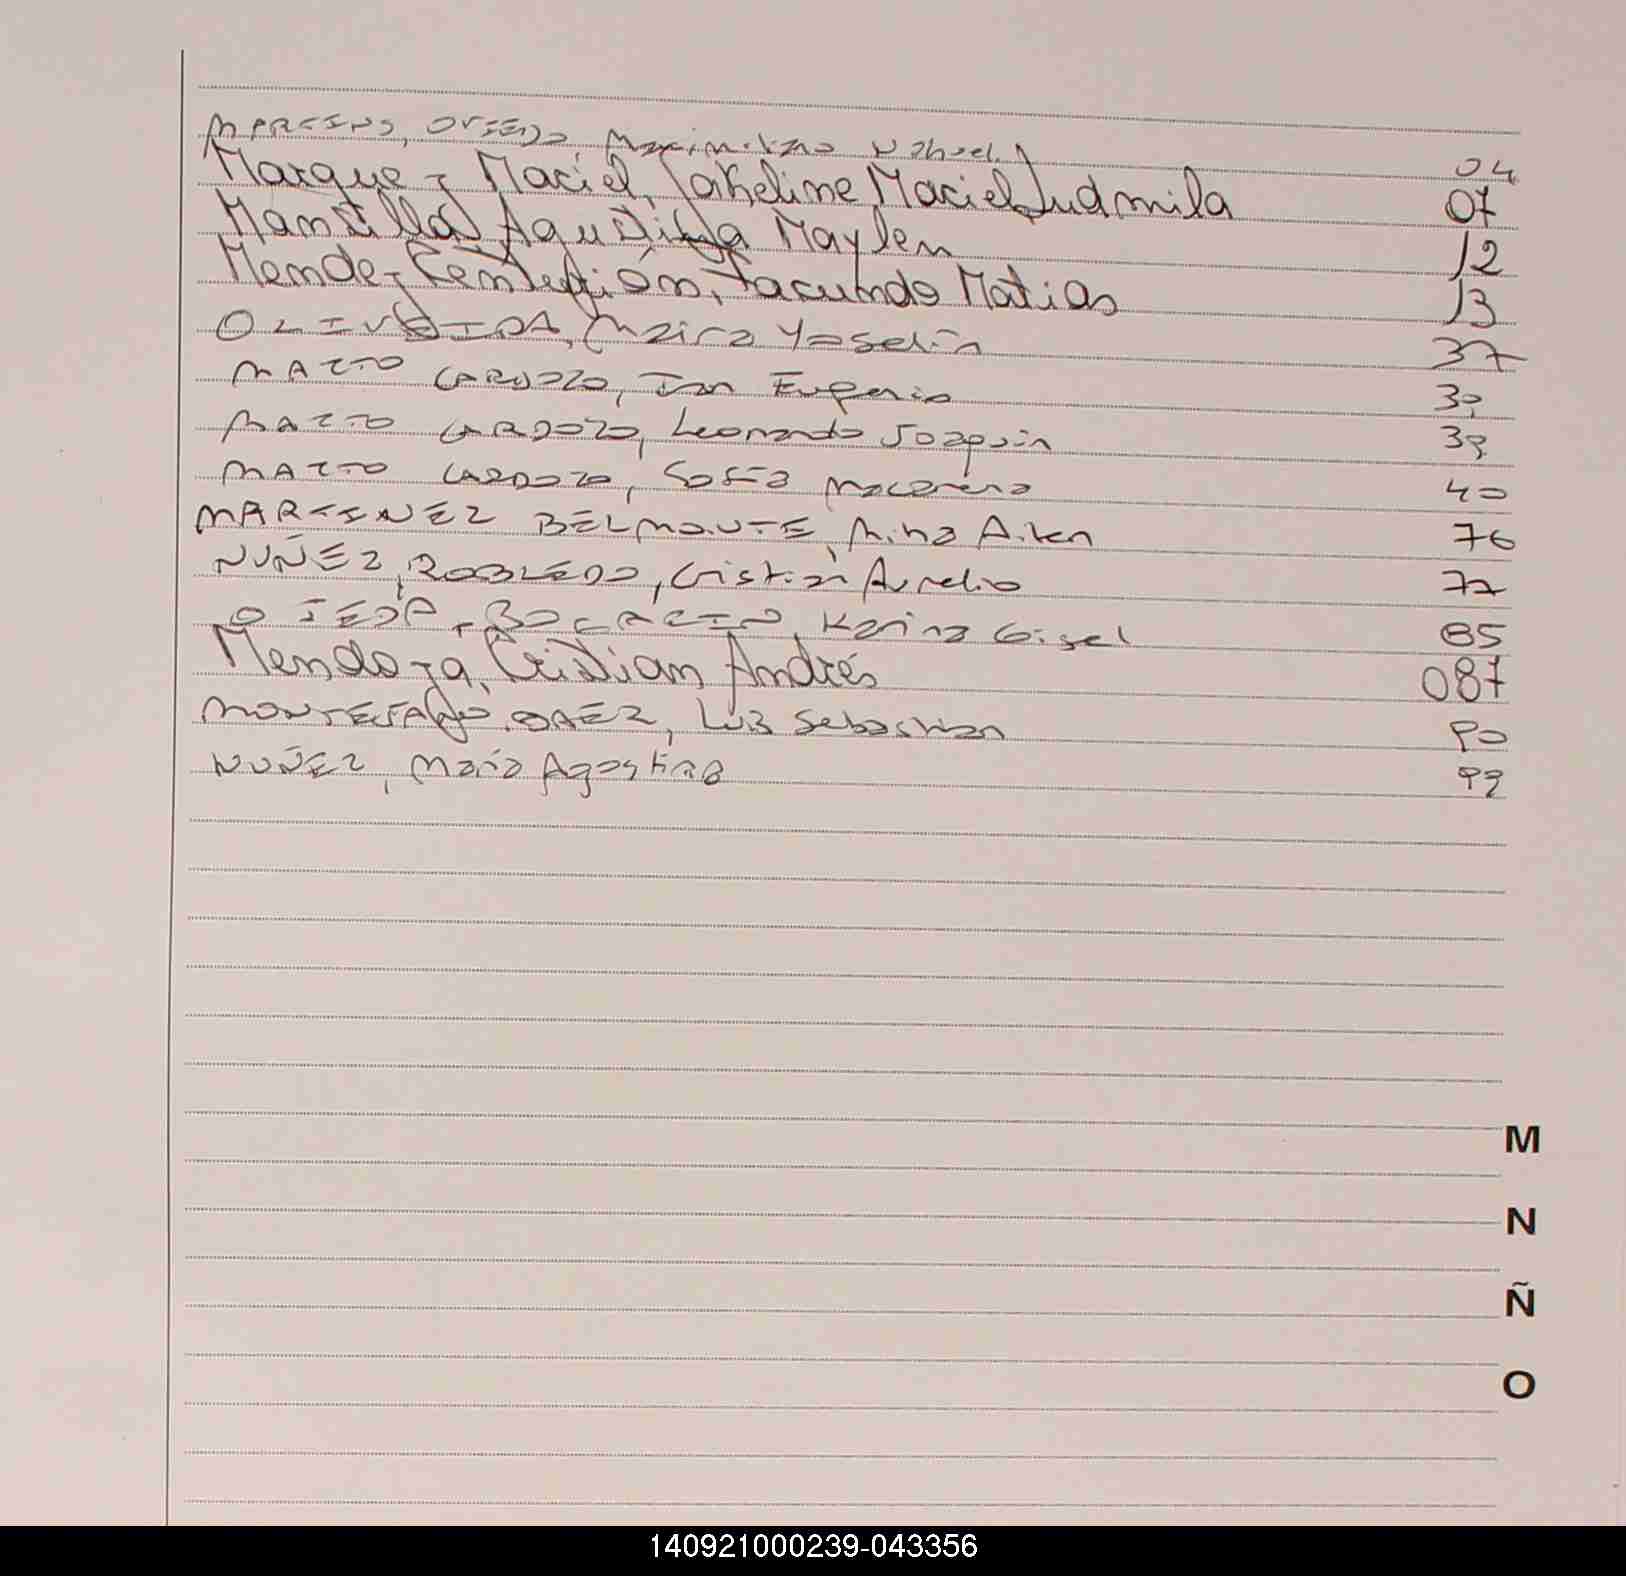 MARTINS, OVIEDO, Maximiliano Nahuel 04
Marquez Maciel, Jakeline, Maciel Ludmila 07
Mansilla, Agustina Maylen 12
Mendez, Facundo Matias 13
OLIVEIRA, Maira Yoselin 37
MATTO CARDOZO, Ian Eugenio 39
MATTO CARDOZO, Leonardo Joaquin 39
MATTO CARDOZO, Sofia Macarena 40
MARTINEZ BELMONTE, Mina Ailen 76
NUÑEZ, ROBLEDO, Cristian Aurelio 77
OJEDA, Karina Gisel 85
Mendoza, Cristian Andrés 087
BAEZ, Luis Sebastian 90
NUÑEZ, Maria Agostina 99
M
N
Ñ
O
140921000239-043356